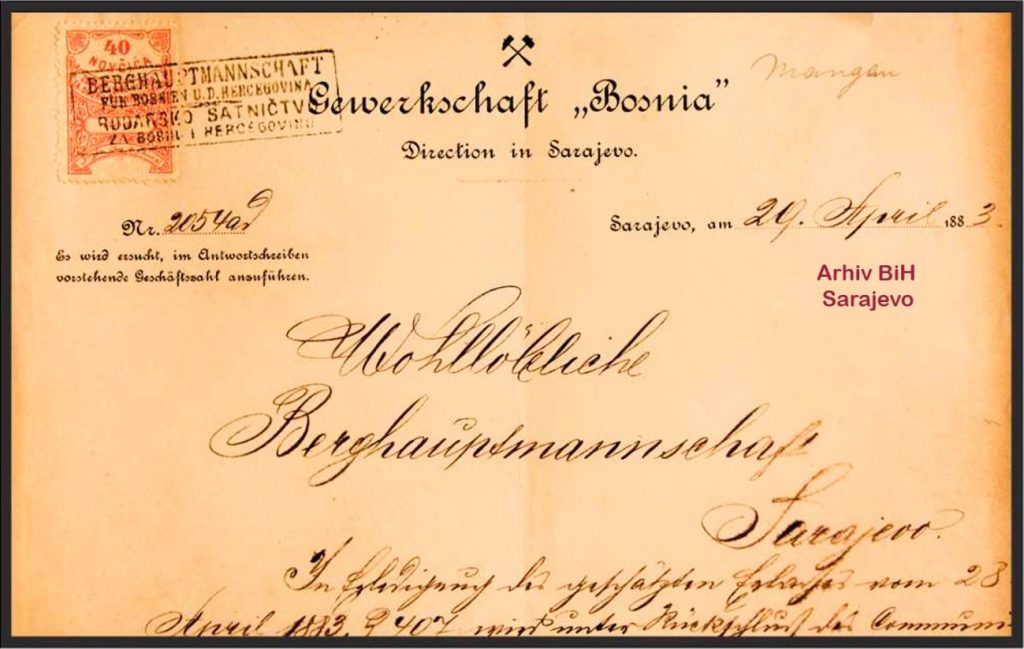 40
NOVČIĆA
BERGHAUPTMANNSCHAFT
FÜR BOSNIEN U. D. HERCEGOVINA
RUDARSKO SATNIČTVO
ZA BOSNU I HERCEGOVINU
Mangan
Gewerkschaft „Bosnia”
Direction in Sarajevo.
Nr. 2054 ad
Sarajevo, am 29. April 1883.
Es wird ersucht, im Antwortschreiben
vorstehende Geschäftszahl anzuführen.
Arhiv BiH
Sarajevo
Wohllöbliche
Berghauptmannschaft
Sarajevo.
In Erledigung des geschätzten Erlasses vom 28
April 1883. Z 407 wird unter Rückschluß des Communi-